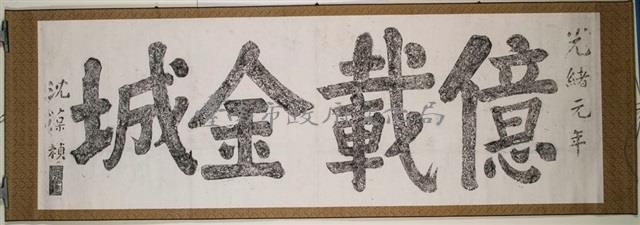 光緒元年
億載金城
沈葆楨